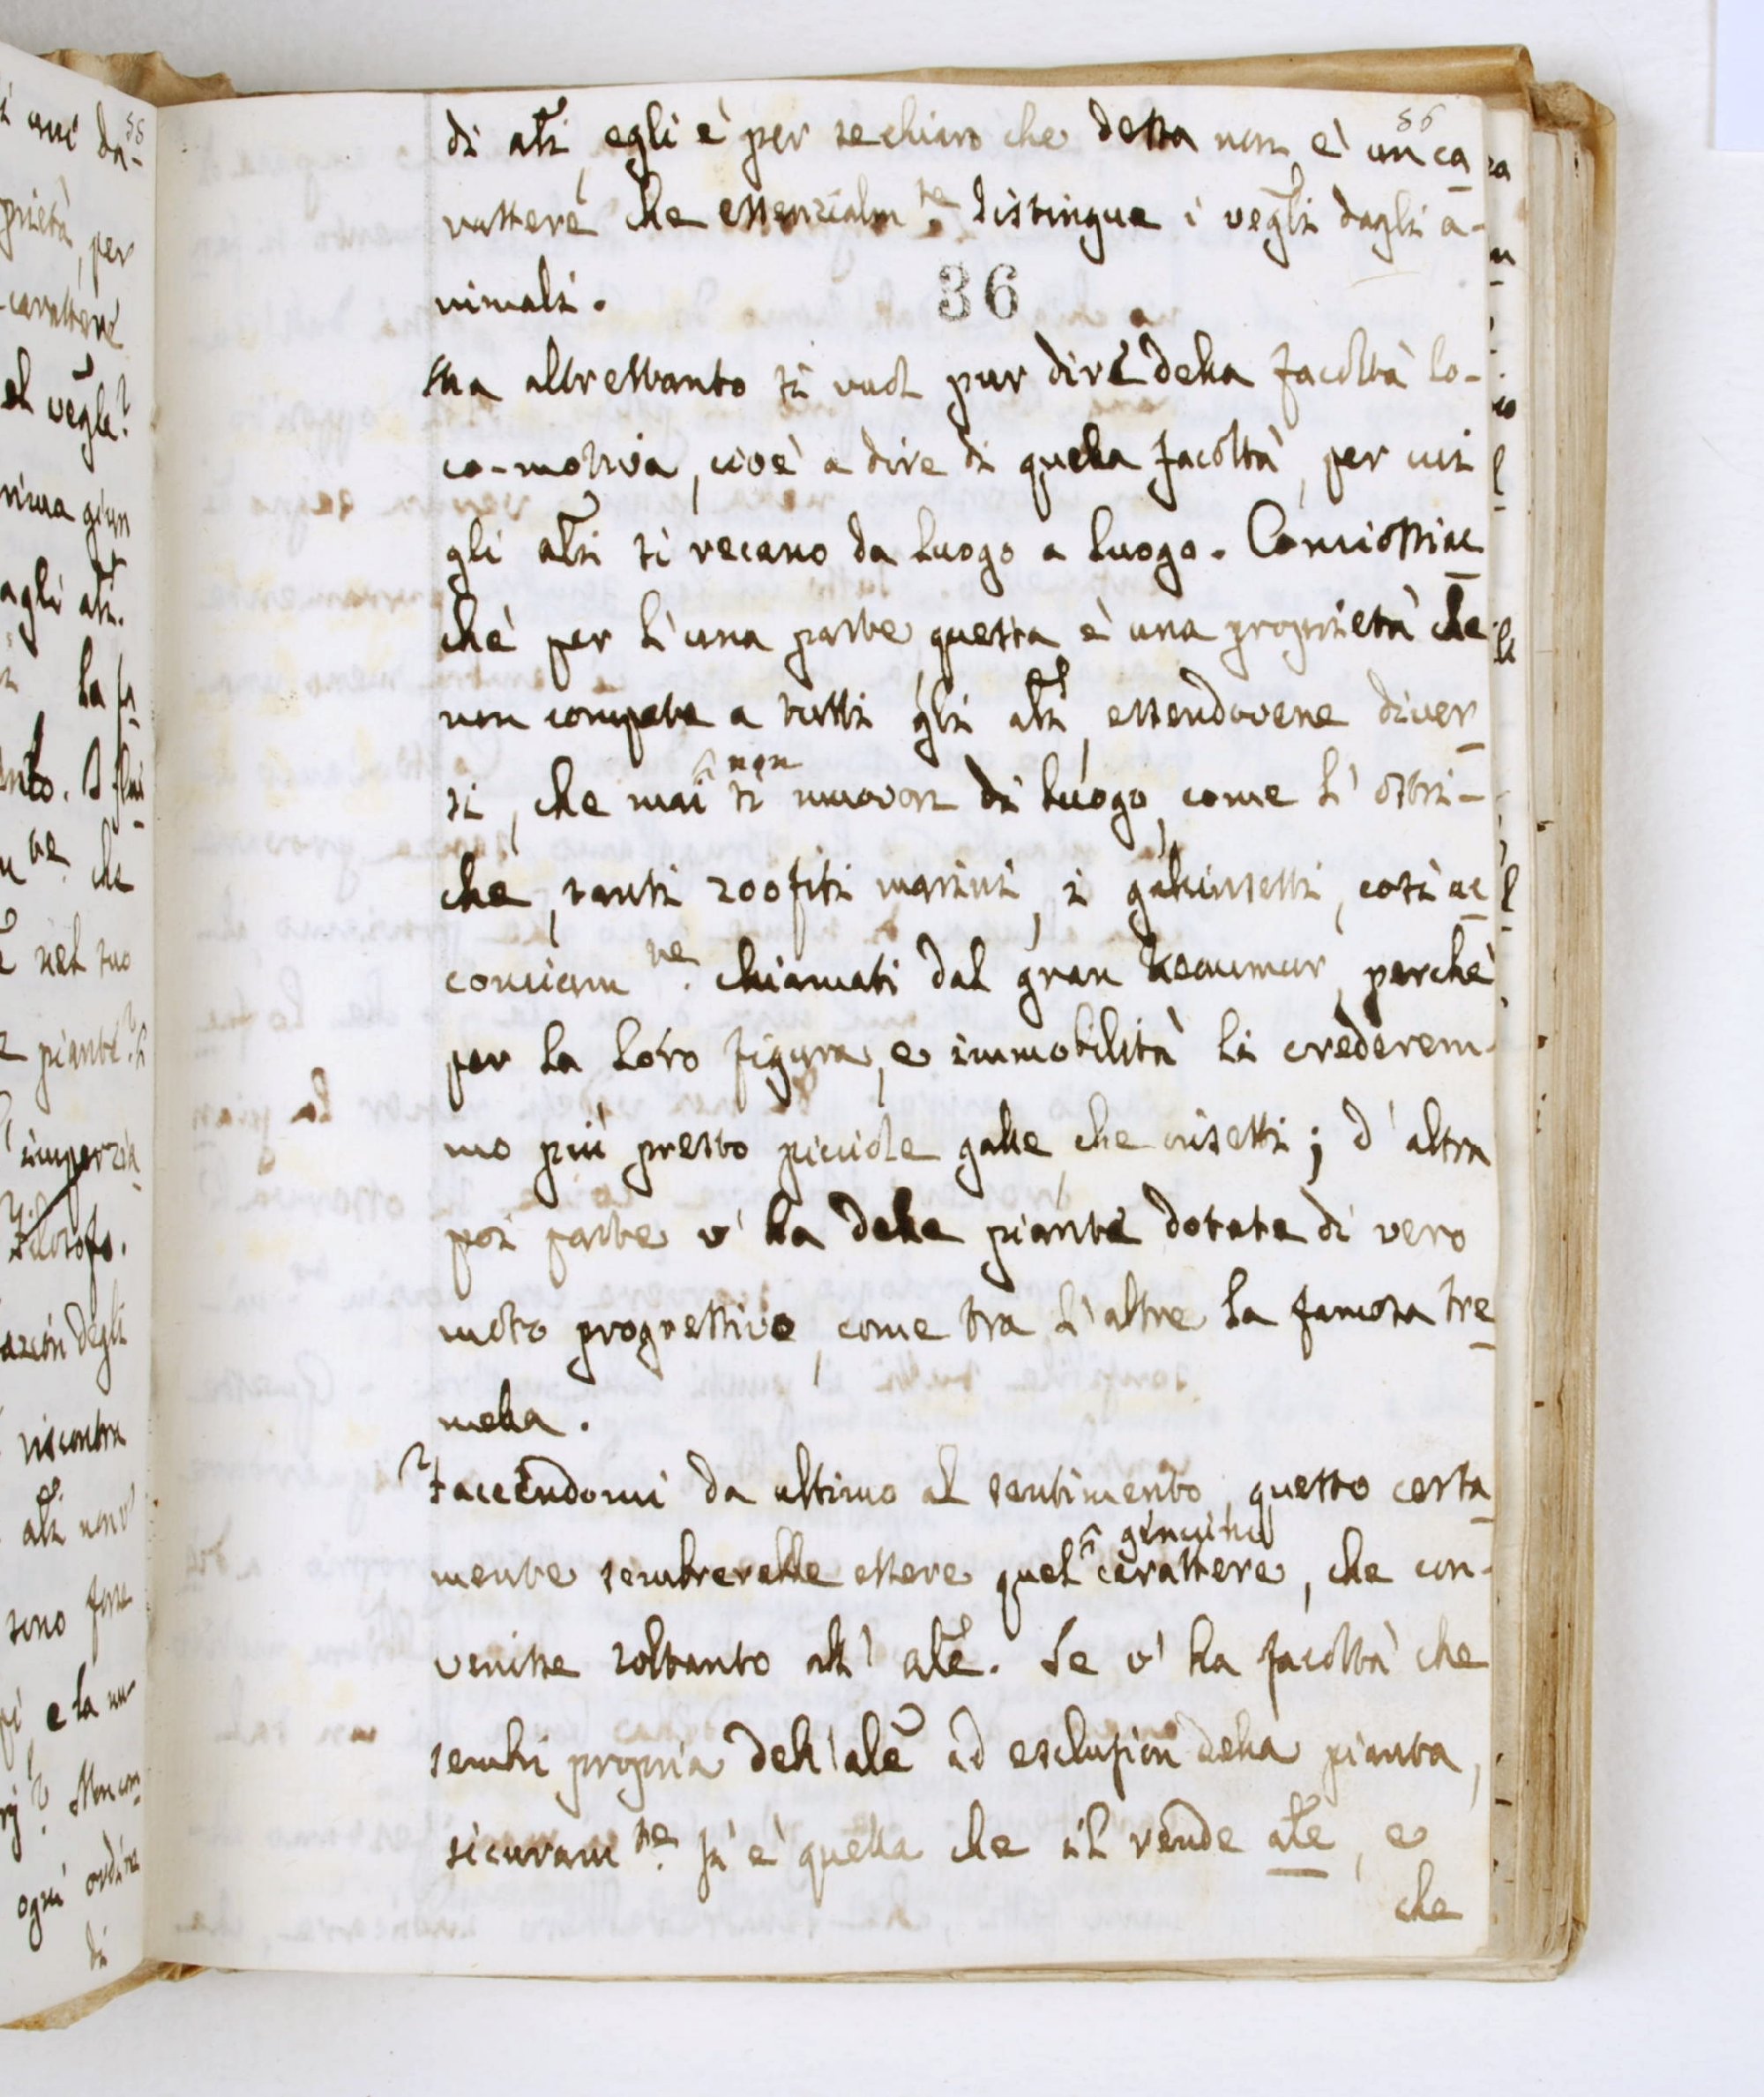 56
di ali, egli è per se chiaro che dessa non è un ca
rattere che essenzialm.te distingue i vegli dagli a-
nimali.
36
Ma altrettanto si vuol pur dire della facoltà lo-
co-motiva, cioè a dire di quella facoltà, per cui
gli ali si recano da luogo a luogo. Conciossiac
chè per l'una parte questa è una proprietà che
non compete a tutti gli ali, essendovene diver
si, che mai non si muovon di luogo, come l'ostri-
che, tanti zoofiti marini, i gallinsetti, così ac
conciam.te chiamati dal gran Reaumur, perchè
per la loro figura, e immobilità li crederem-
mo più presto picciole galle che insetti; d'altra
poi parte v'ha delle piante dotate di vero
moto progressivo, come tra l'altre la famosa tre
mella.
Facendomi da ultimo al sentimento, questo certa
mente sembrerebbe essere quel genuino carattere, che con-
venisse soltanto all'ale. Se v'ha facoltà che
sembri propria dell'ale ad esclusion della pianta,
sicuram.te si è quella che il rende ale, e
che